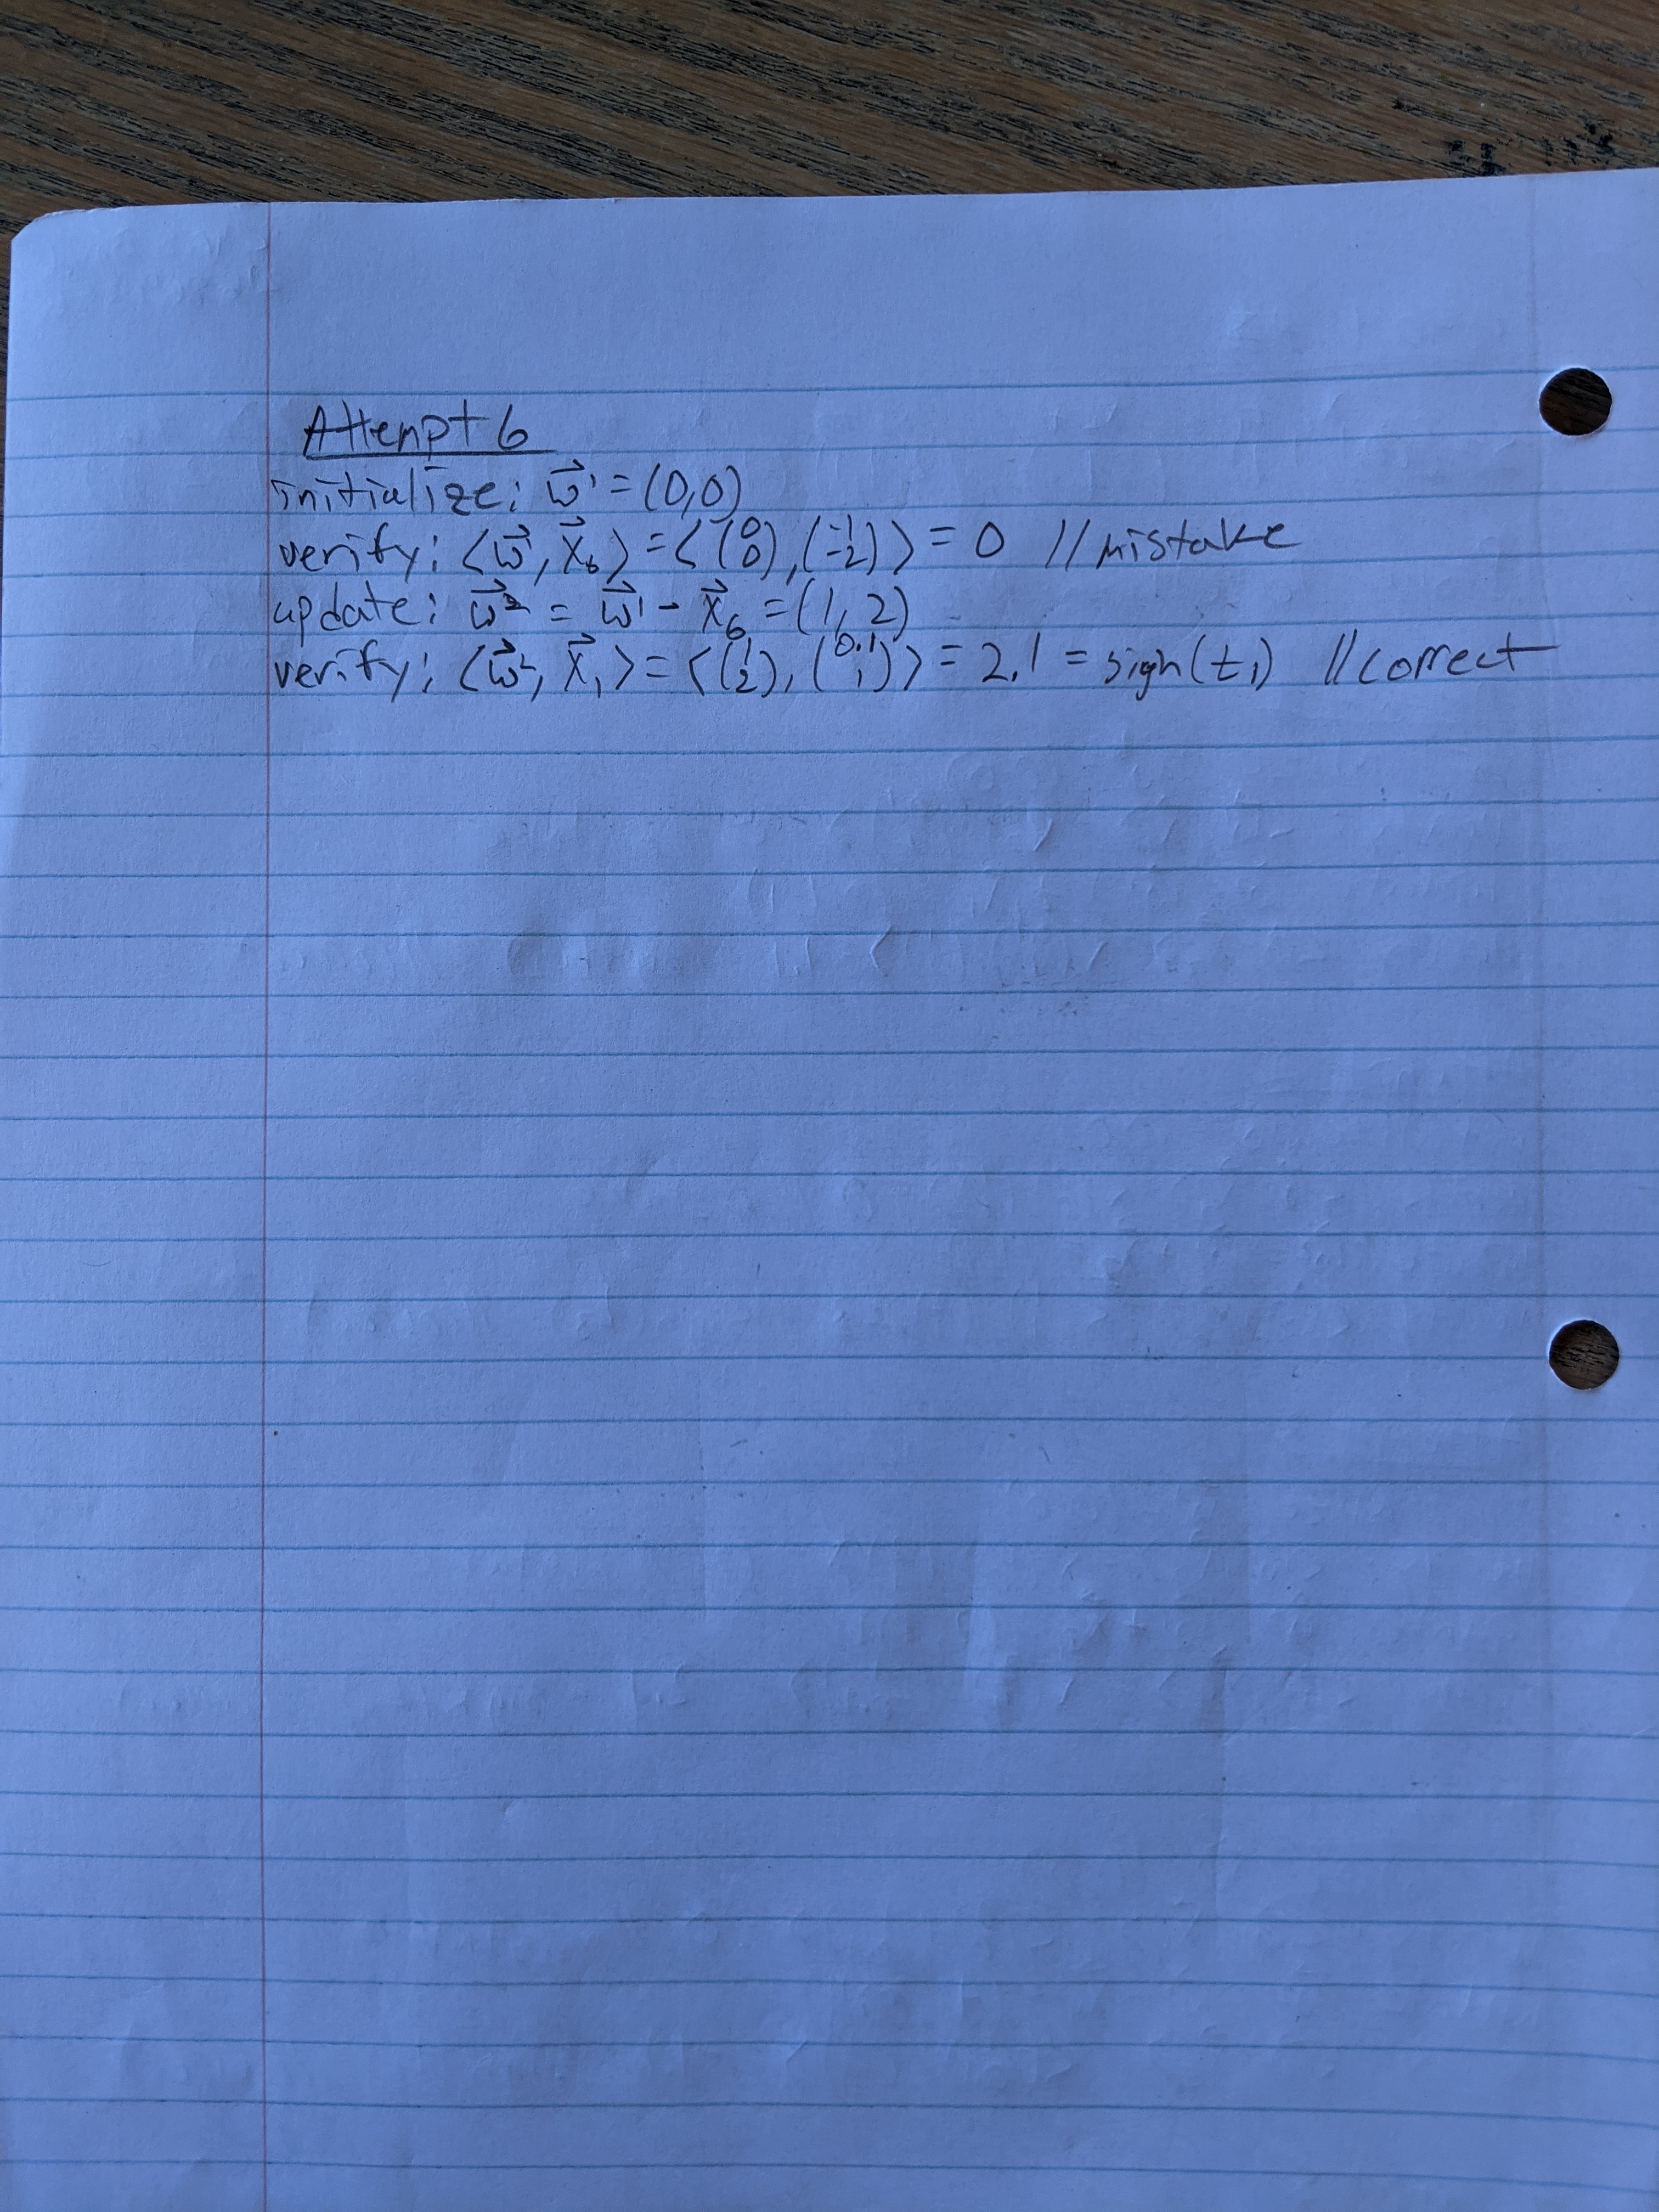 Attempt 6
initialize: w⃗¹ = (0,0)
verify: ⟨w⃗¹, x⃗₆⟩ = ⟨(0 0), (-1 -2)⟩ = 0 // mistake
update: w⃗² = w⃗¹ - x⃗₆ = (1, 2)
verify: ⟨w⃗², x⃗₁⟩ = ⟨(1 2), (0.1 1)⟩ = 2.1 = sign(t₁) // correct